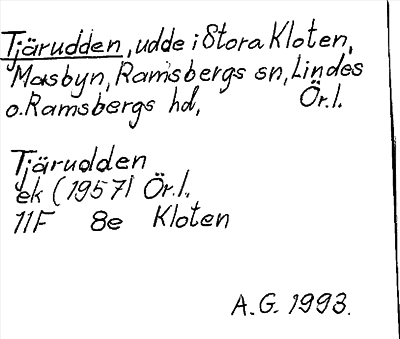 Tjärudden, udde i Stora Kloten,
Masbyn, Ramsbergs sn, Lindes
o. Ramsbergs hd, Ör.l.
Tjärudden
ek (1957) Ör.l.
11F 8e Kloten
A.G. 1993.